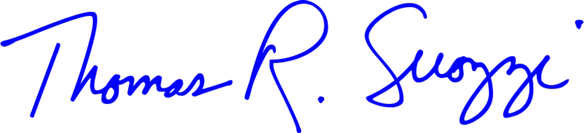 Thomas R. Suozzi